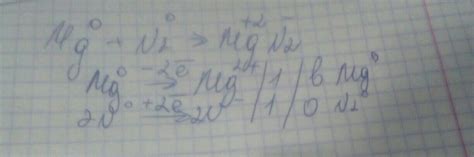 Mg⁰ + N₂⁰ > Mg⁺²N₂⁻
Mg⁰ −2e̅ → Mg²⁺ | 1 | в Mg⁰
2N⁰ +2e̅ → 2N⁻ | 1 | О N₂⁰